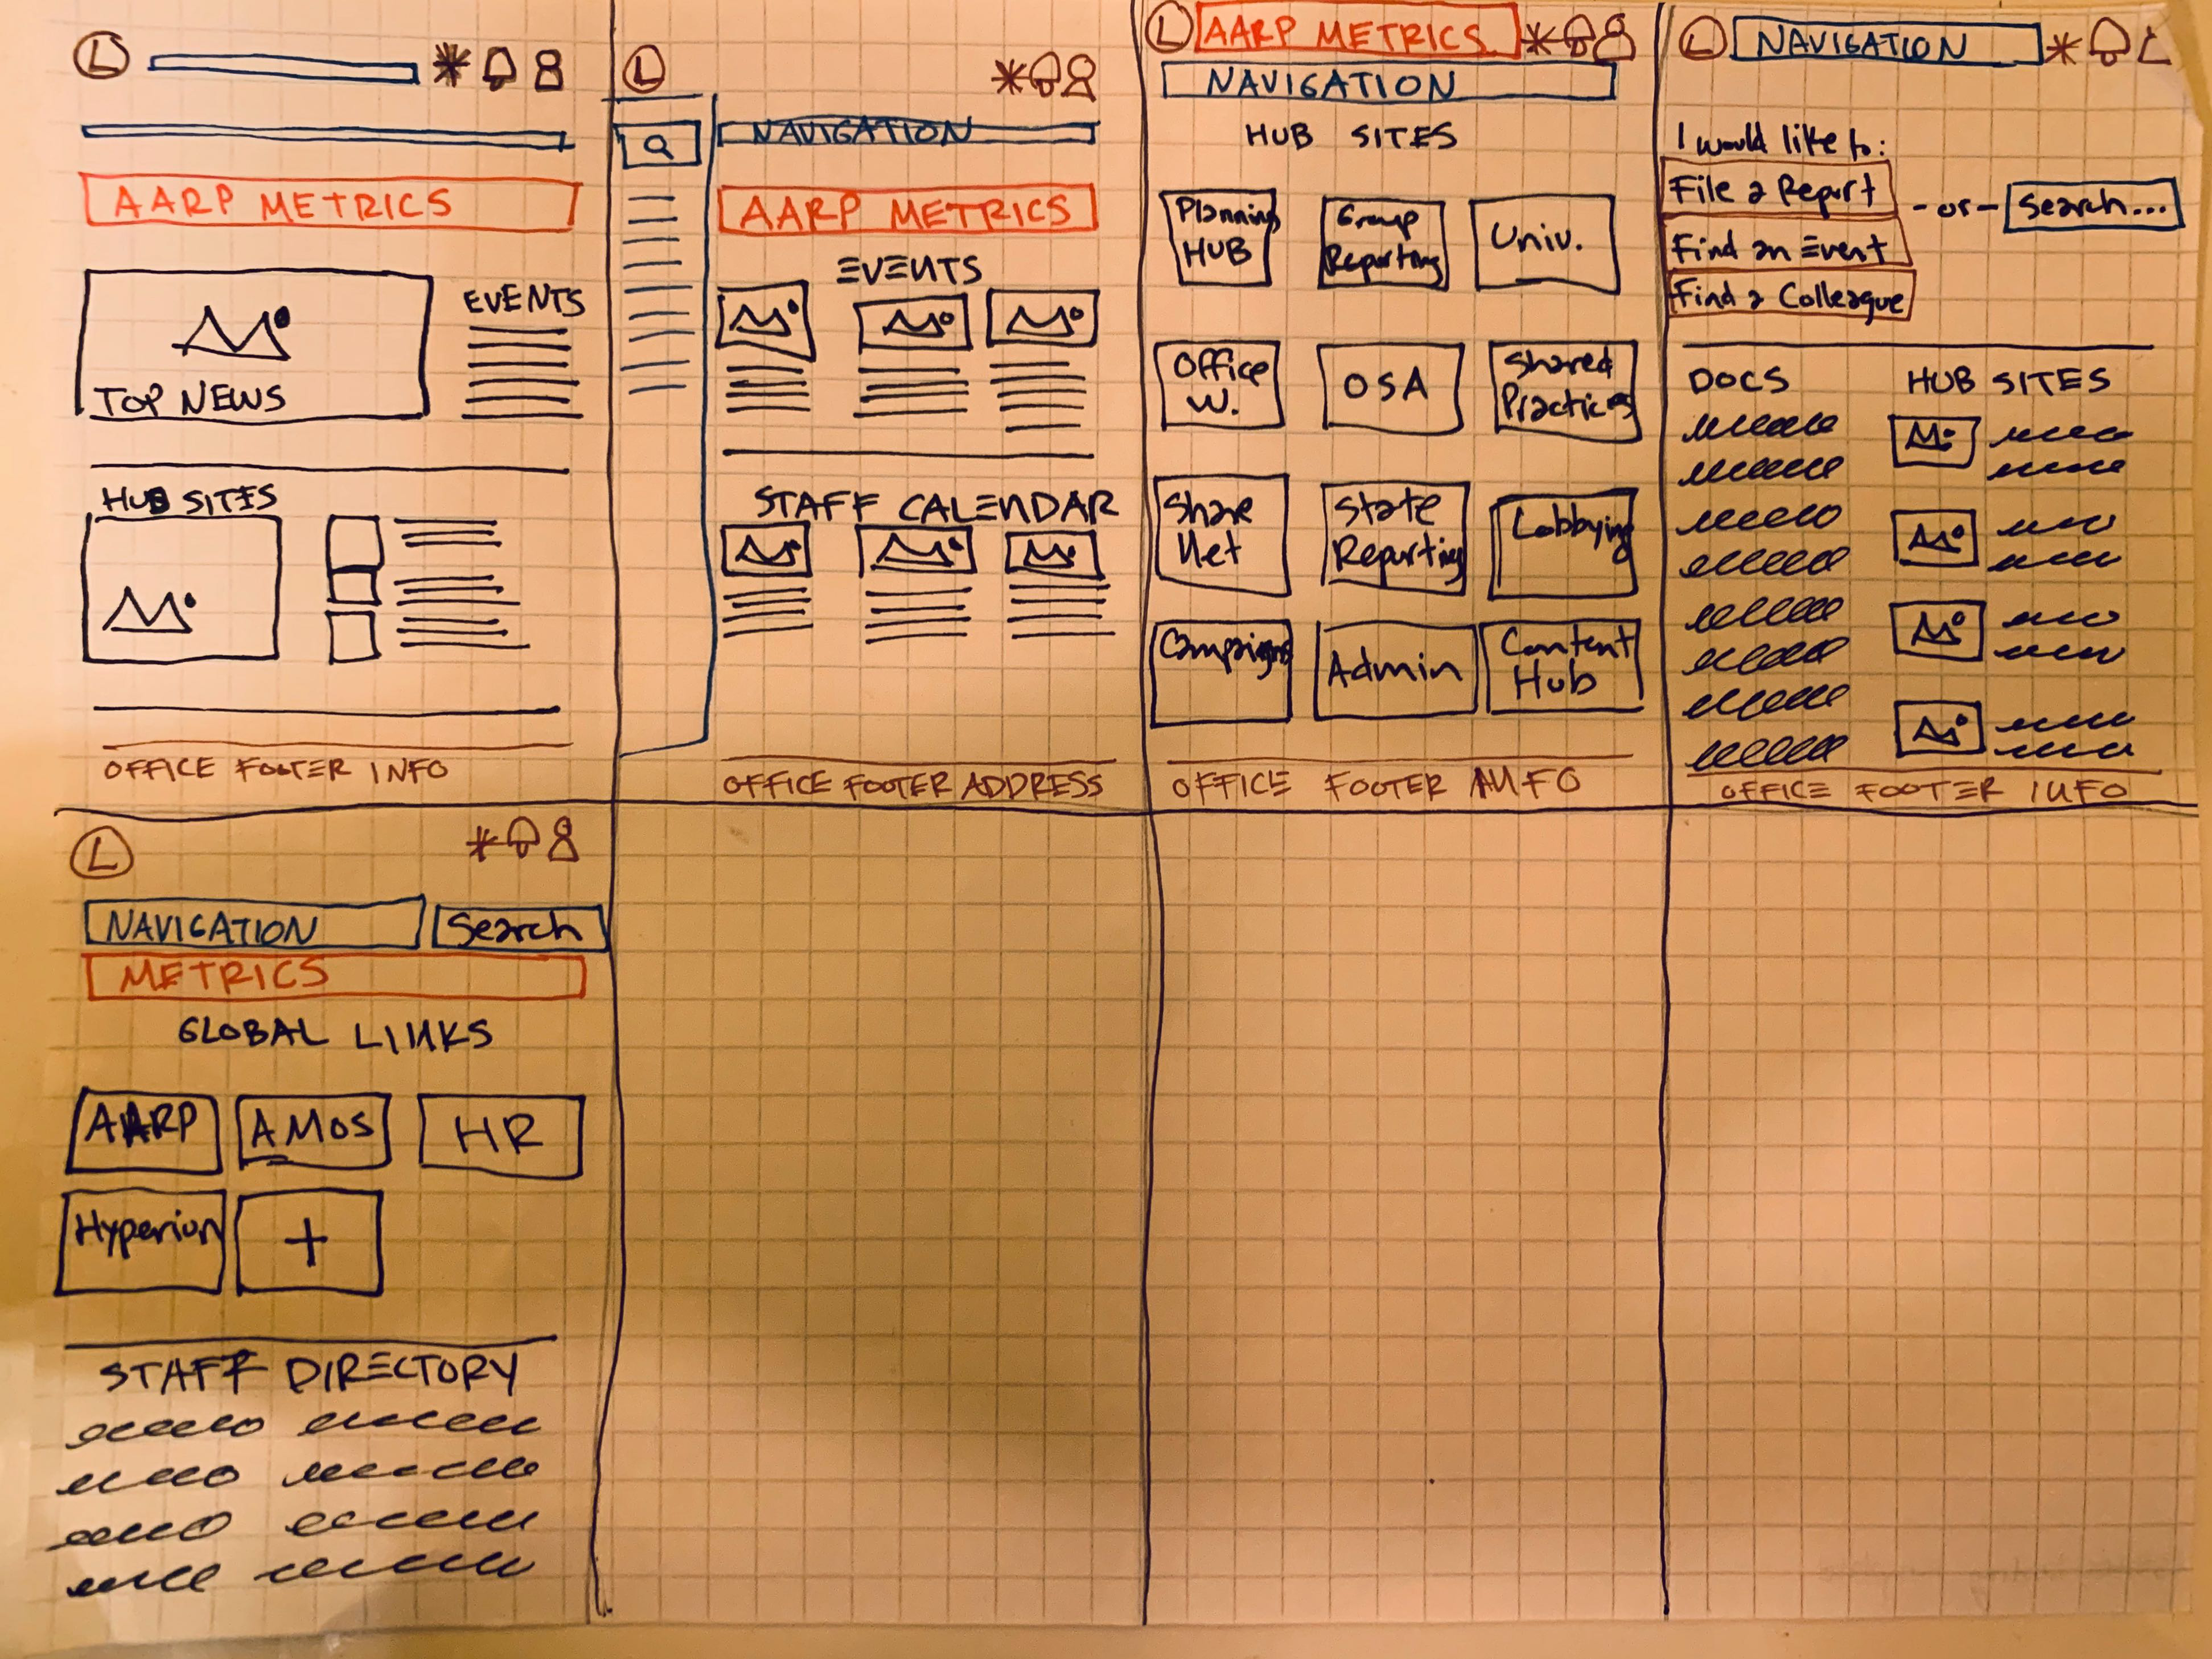 L
AARP METRICS
EVENTS
TOP NEWS
HUB SITES
OFFICE FOOTER INFO
L
NAVIGATION
AARP METRICS
EVENTS
STAFF CALENDAR
OFFICE FOOTER ADDRESS
L
AARP METRICS
NAVIGATION
HUB SITES
Planning
HUB
Group
Reporting
Univ.
Office
W.
OSA
Shared
Practices
Share
Net
State
Reporting
Lobbying
Campaigns
Admin
Content
Hub
OFFICE FOOTER INFO
L
NAVIGATION
I would like to:
File a Report
Find an Event
Find a Colleague
-or-
Search...
DOCS
HUB SITES
OFFICE FOOTER INFO
L
NAVIGATION
Search
METRICS
GLOBAL LINKS
AARP
AMOS
HR
Hyperion
+
STAFF DIRECTORY